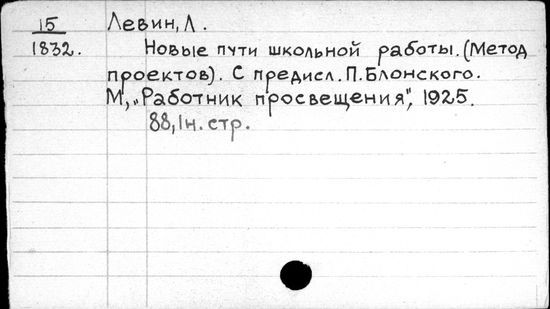 15 Левин, Л.
1832. Новые пути школьной работы. (Метод
проектов). С предисл. П. Блонского.
М, „Работник просвещения", 1925.
88, 1н. стр.